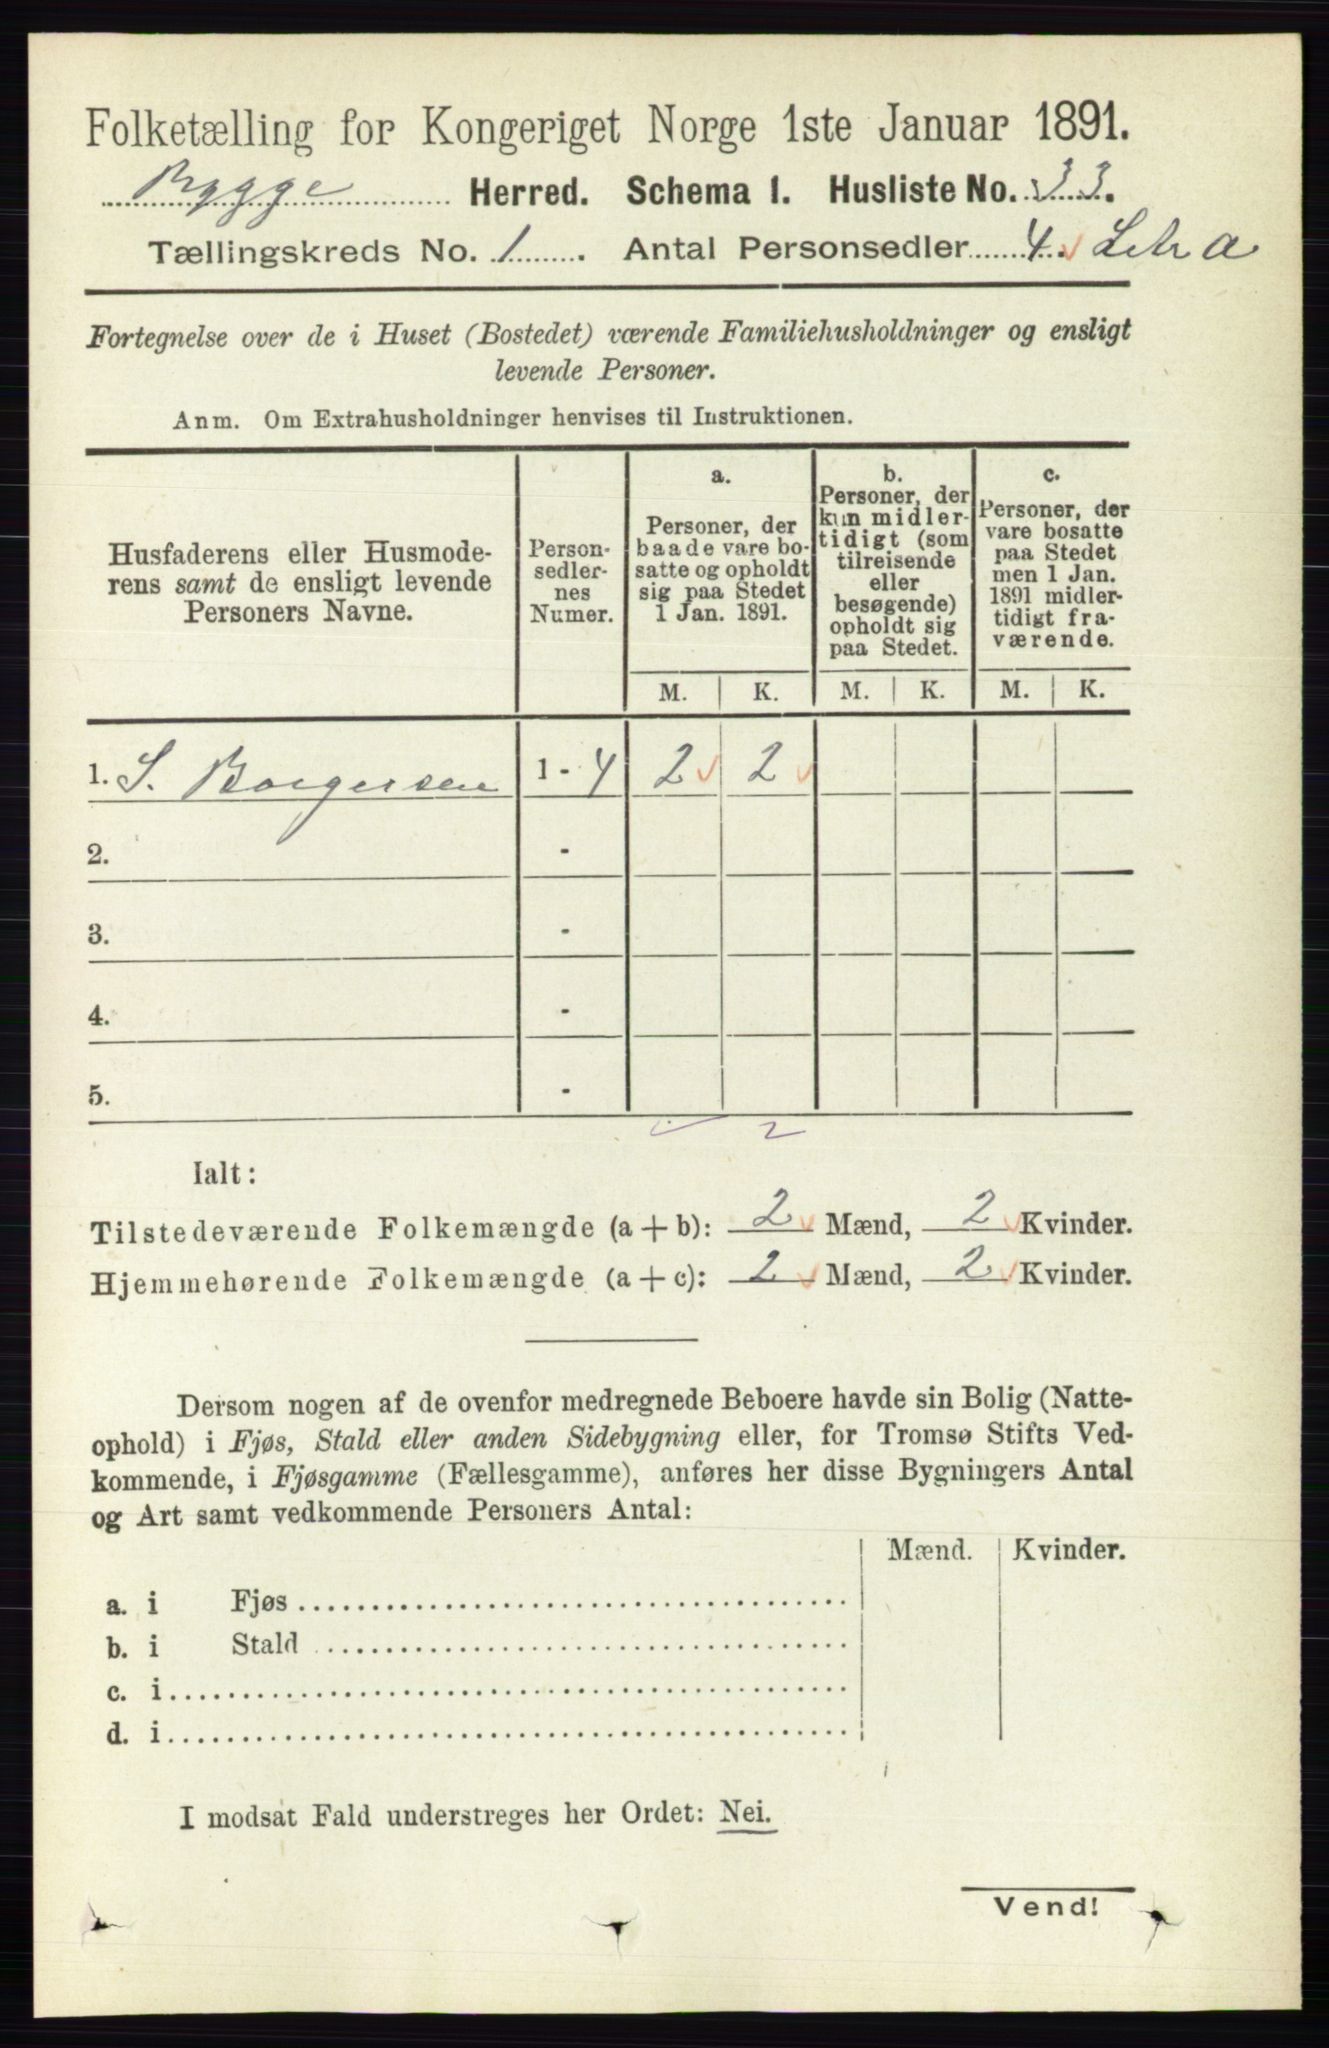 Folketælling for Kongeriget Norge 1ste Januar 1891.
Rygge Herred. Schema 1. Husliste No. 33.
Tællingskreds No. 1. Antal Personsedler 4. Litr a
Fortegnelse over de i Huset (Bostedet) værende Familiehusholdninger og ensligt
levende Personer.
Anm. Om Extrahusholdninger henvises til Instruktionen.
Husfaderens eller Husmode-
rens samt de ensligt levende
Personers Navne.
Person-
sedler-
nes
Numer.
a.
Personer, der
baade vare bo-
satte og opholdt
sig paa Stedet
1 Jan. 1891.
b.
Personer, der
kun midler-
tidigt (som
tilreisende
eller
besøgende)
opholdt sig
paa Stedet.
c.
Personer, der
vare bosatte
paa Stedet
men 1 Jan.
1891 midler-
tidigt fra-
værende.
M. K. M. K. M. K.
1. S. Borgersen 1 - 4 2 2
2. -
3. -
4. -
5. -
2
Ialt:
Tilstedeværende Folkemængde (a + b): 2 Mænd, 2 Kvinder.
Hjemmehørende Folkemængde (a + c): 2 Mænd, 2 Kvinder.
Dersom nogen af de ovenfor medregnede Beboere havde sin Bolig (Natte-
ophold) i Fjøs, Stald eller anden Sidebygning eller, for Tromsø Stifts Ved-
kommende, i Fjøsgamme (Fællesgamme), anføres her disse Bygningers Antal
og Art samt vedkommende Personers Antal:
Mænd. Kvinder.
a. i Fjøs
b. i Stald
c. i
d. i
I modsat Fald understreges her Ordet: Nei.
Vend!